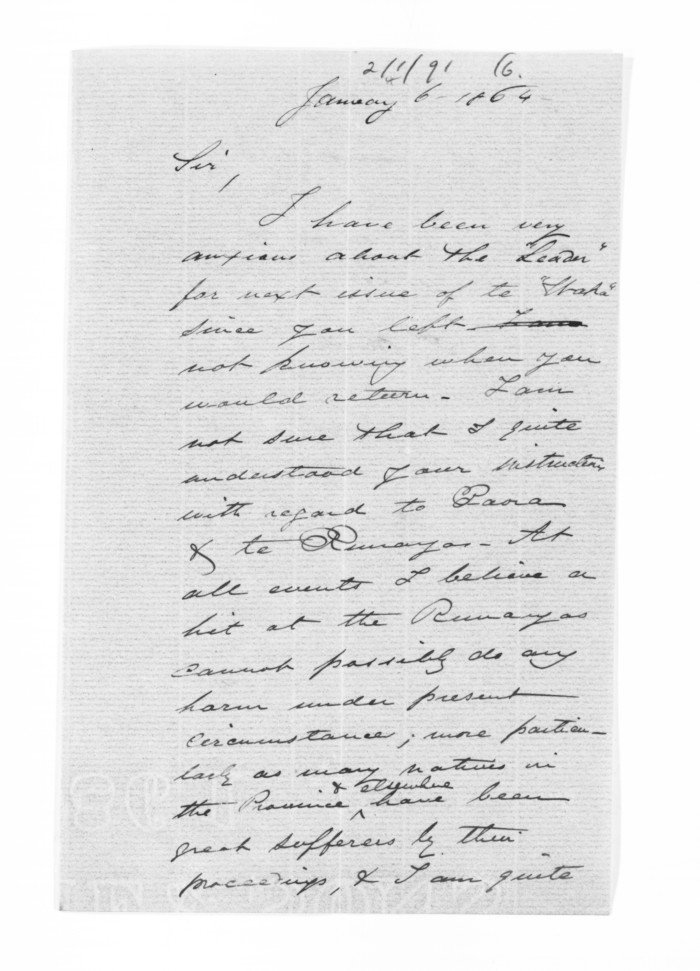 2/1/91 6.
January 6 - 1864 -
Sir,
I have been very
anxious about the "Leader"
for next issue of te "Waka"
since you left - I am
not knowing when you
would return - I am
not sure that I quite
understood your instructions
with regard to Paora
& te Runangas - At
all events I believe a
hit at the Runangas
cannot possibly do any
harm under present
circumstances; more particu-
larly as many natives in
the Province & elsewhere have been
great sufferers by their
proceedings, & I am quite